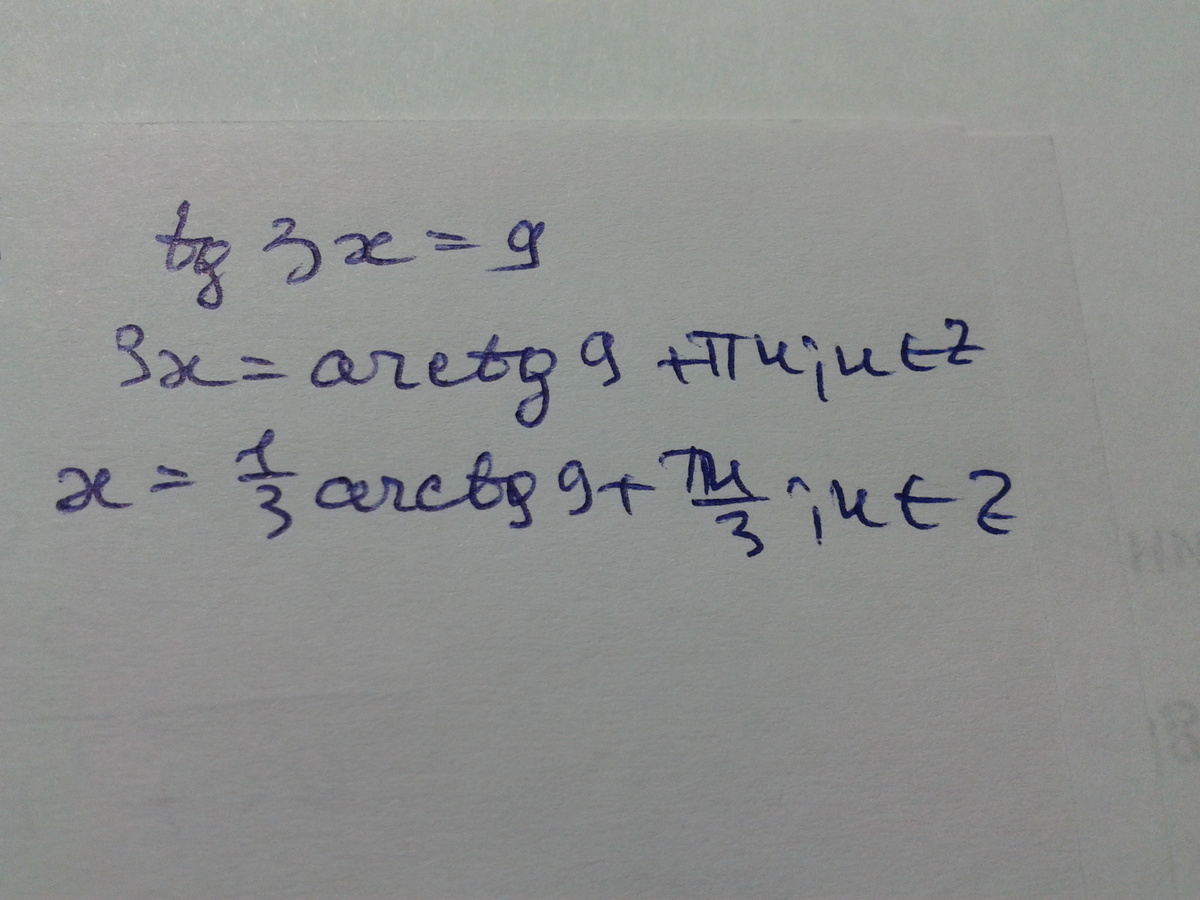 tg 3x = 9
3x = arctg 9 + πn; n ∈ Z
x = 1/3 arctg 9 + πn/3; n ∈ Z